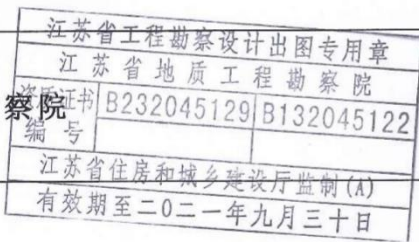 江苏省工程勘察设计出图专用章
江苏省地质工程勘察院
察院
资质证书
编号
B232045129 B132045122
江苏省住房和城乡建设厅监制(A)
有效期至二〇二一年九月三十日